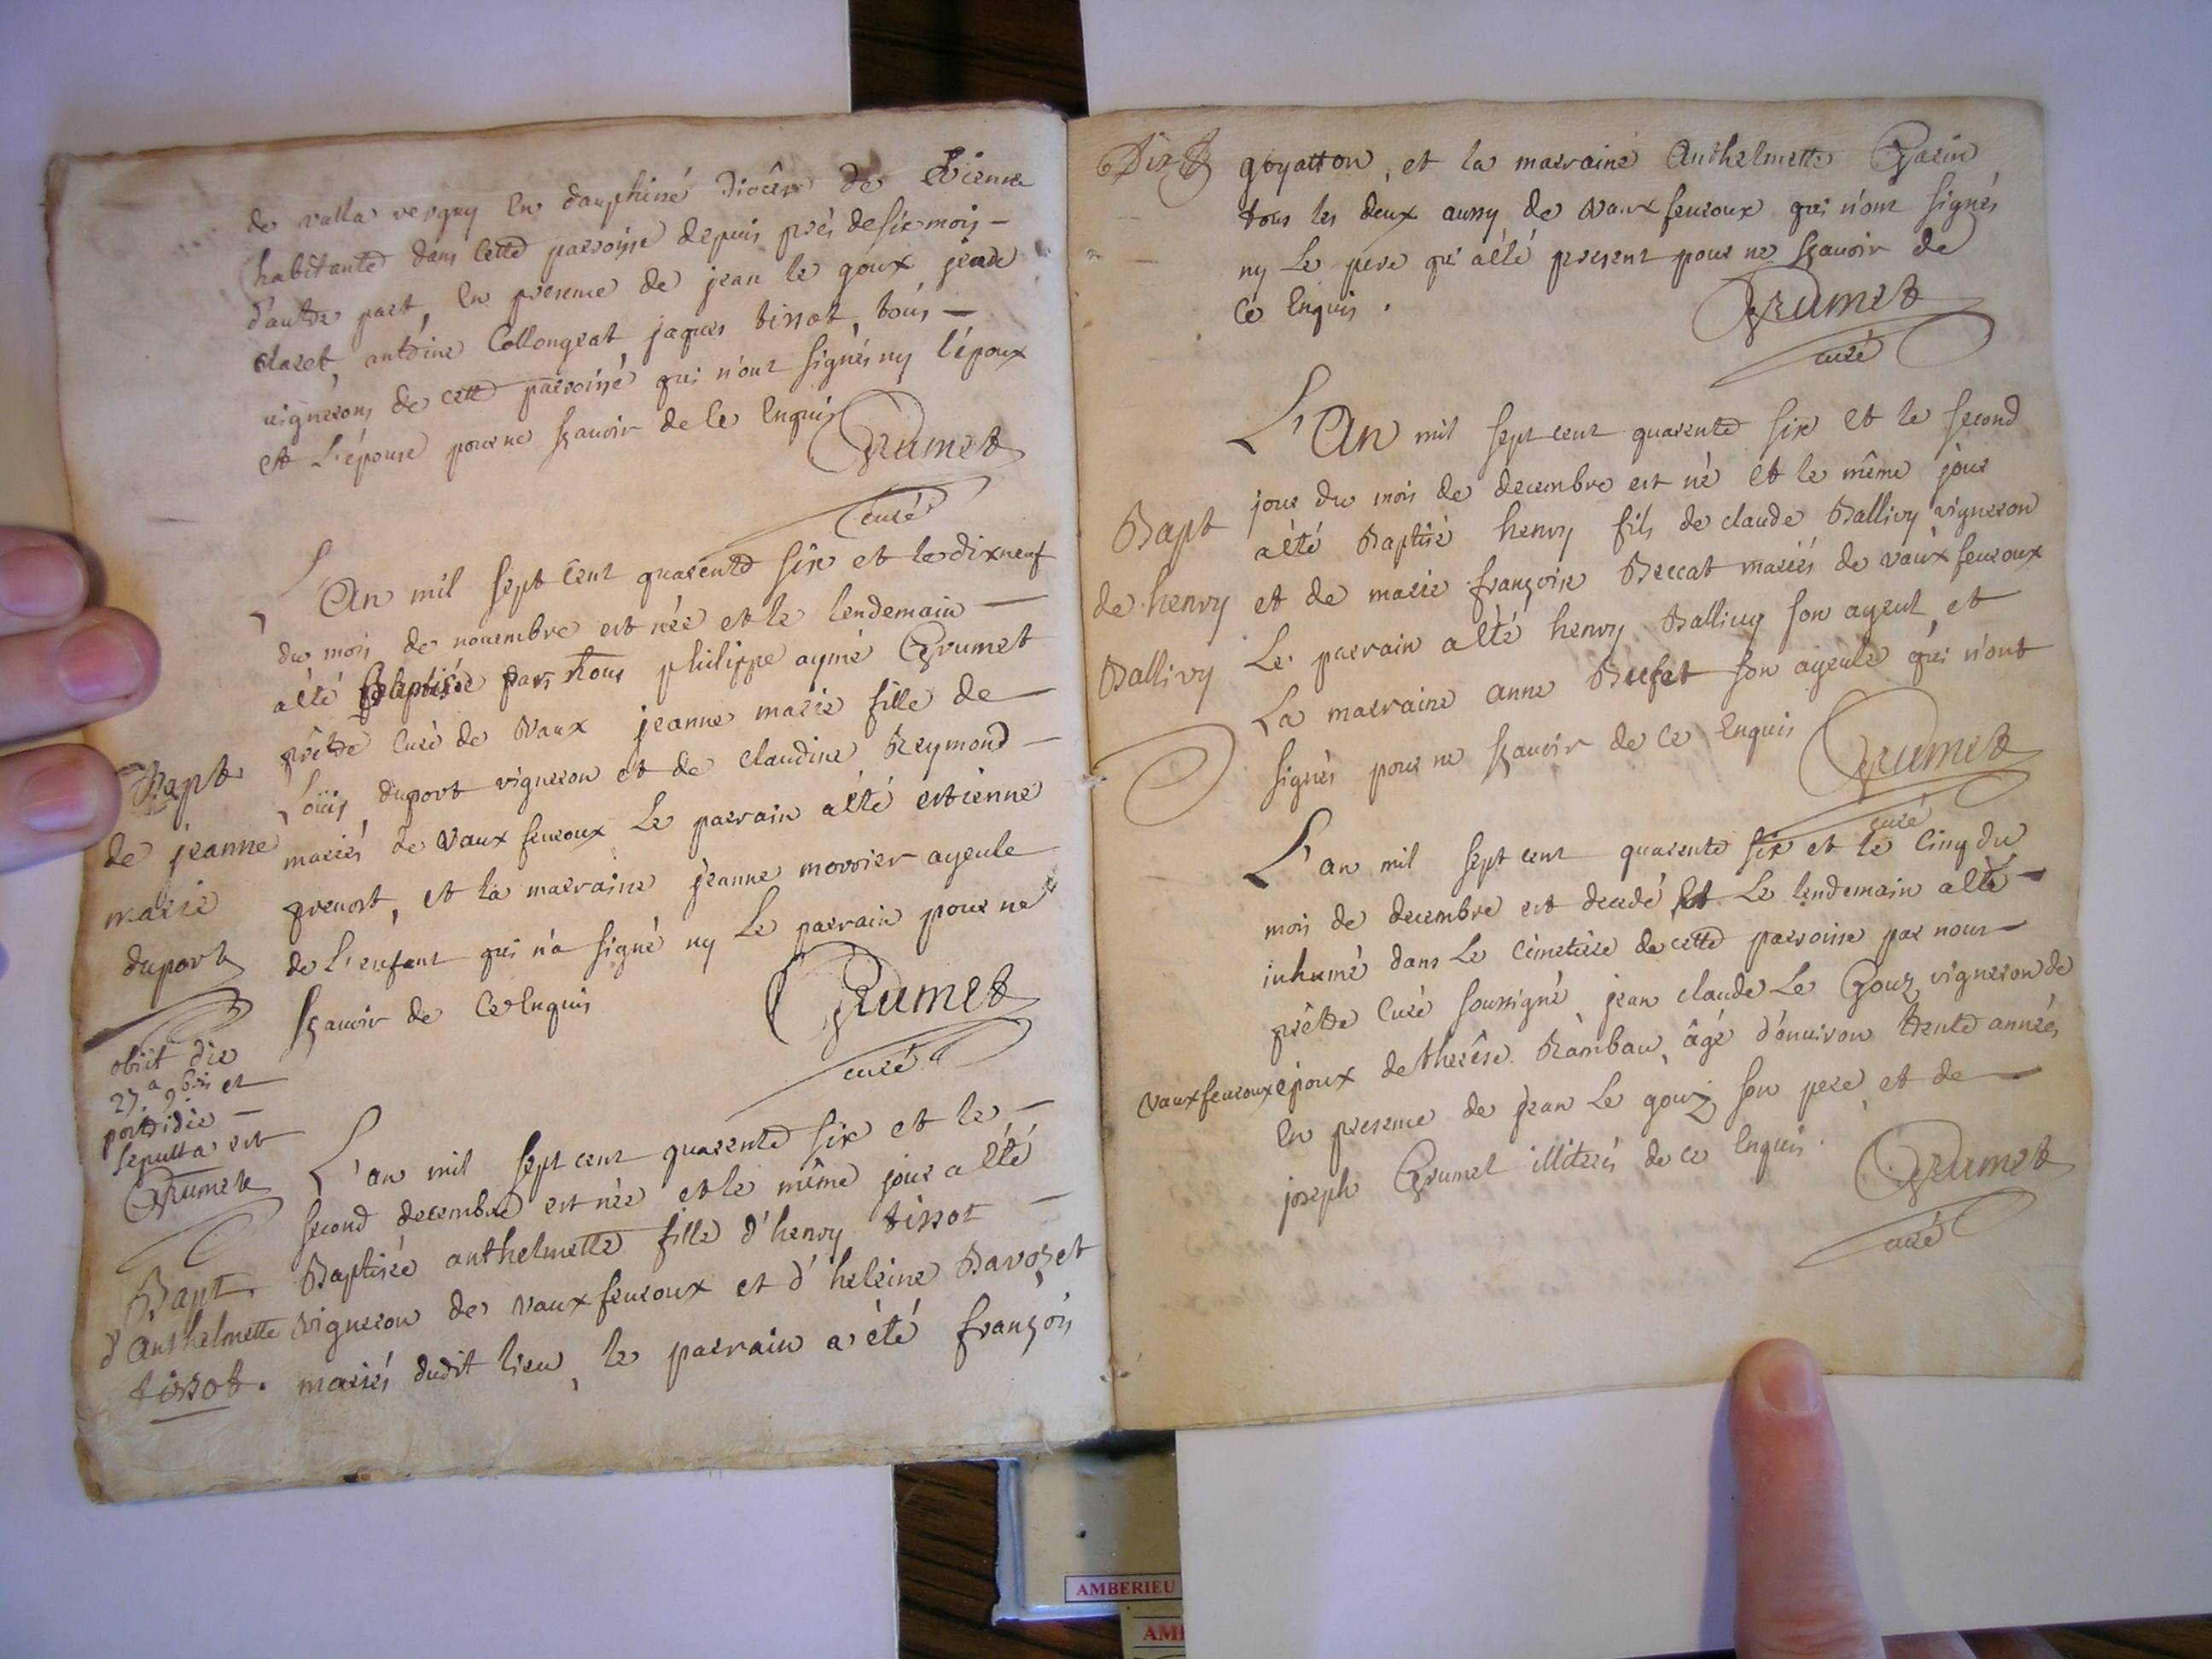 de valla vergny en dauphiné diocèse de Vienne
habitante dans cette parroisse depuis près de six mois —
d'autre part, en presence de jean le goux jean
claret, antoine Collongeat, jaques tissot, tous —
vignerons de cette parroisse qui n'ont signés ny l'époux
et L'épouse pour ne sçavoir de ce enquis
Grumet
curé
L'An mil sept cent quarente six et le dixneuf
du mois de novembre est née et le lendemain —
a été Baptisée par Nous philippe aymé Grumet
prêtre curé de Vaux jeanne marie fille de —
Loüis duport vigneron et de claudine Reymond —
mariés de Vaux fevroux Le parrain a été estienne
prevost, et la marraine jeanne morrier ayeule
de L'enfant qui n'a signé ny Le parrain pour ne
sçavoir de Ce Enquis
Grumet
curé
Bapt
de jeanne
marie
duport
obiit die
27.a 9bris et
postridie —
sepulta est
Grumet
L'an mil sept cent quarente six et le —
second decembre est née et le même jour a été
Baptisée anthelmette fille d'henry tissot —
vigneron de Vaux fevroux et d'heleine Bavozet
mariés dudit lieu, le parrain a été françois
Bapt.
d'Anthelmette
tissot.
Dix
goyatton, et la marraine Anthelmette Garin
tous les deux aussy de Vaux fevroux qui n'ont signés
ny Le pere qui a été present pour ne sçavoir de
Ce Enquis.
Grumet
curé
L'An mil sept cent quarente six et le second
jour du mois de decembre est né et le même jour
a été Baptisé henry fils de claude Ballivy vigneron
et de marie françoise Beccat mariés de vaux fevroux
Le parrain a été henry Ballivy son ayeul, et
La marraine anne son ayeule qui n'ont
signés pour ne sçavoir de ce Enquis
Grumet
curé
Bapt
de henry
Ballivy
L'an mil sept cent quarente six et le cinq du
mois de decembre est decedé et Le lendemain a été —
inhumé dans Le cimetière de cette parroisse par nous —
prêtre Curé soussigné, jean claude Le Gouz vigneron de
vaux fevroux époux de therêse Rambau, âgé d'environ trente années
En presence de jean Le gouz son pere et de —
joseph Grumet illiterés de ce Enquis.
Grumet
curé
AMBERIEU